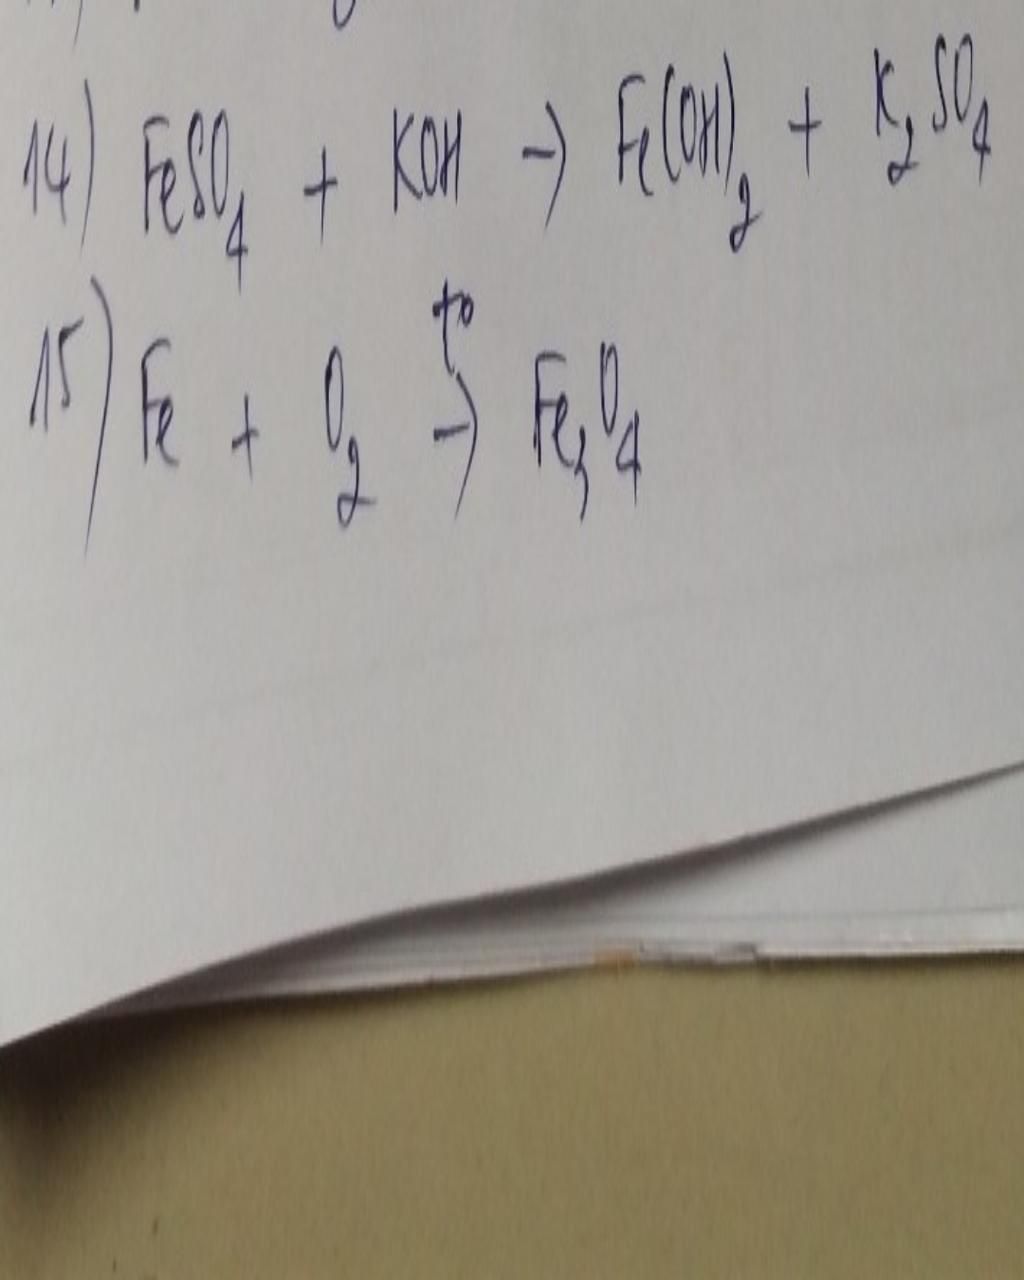 14) FeSO₄ + KOH → Fe(OH)₂ + K₂SO₄
t°
15) Fe + O₂ → Fe₃O₄